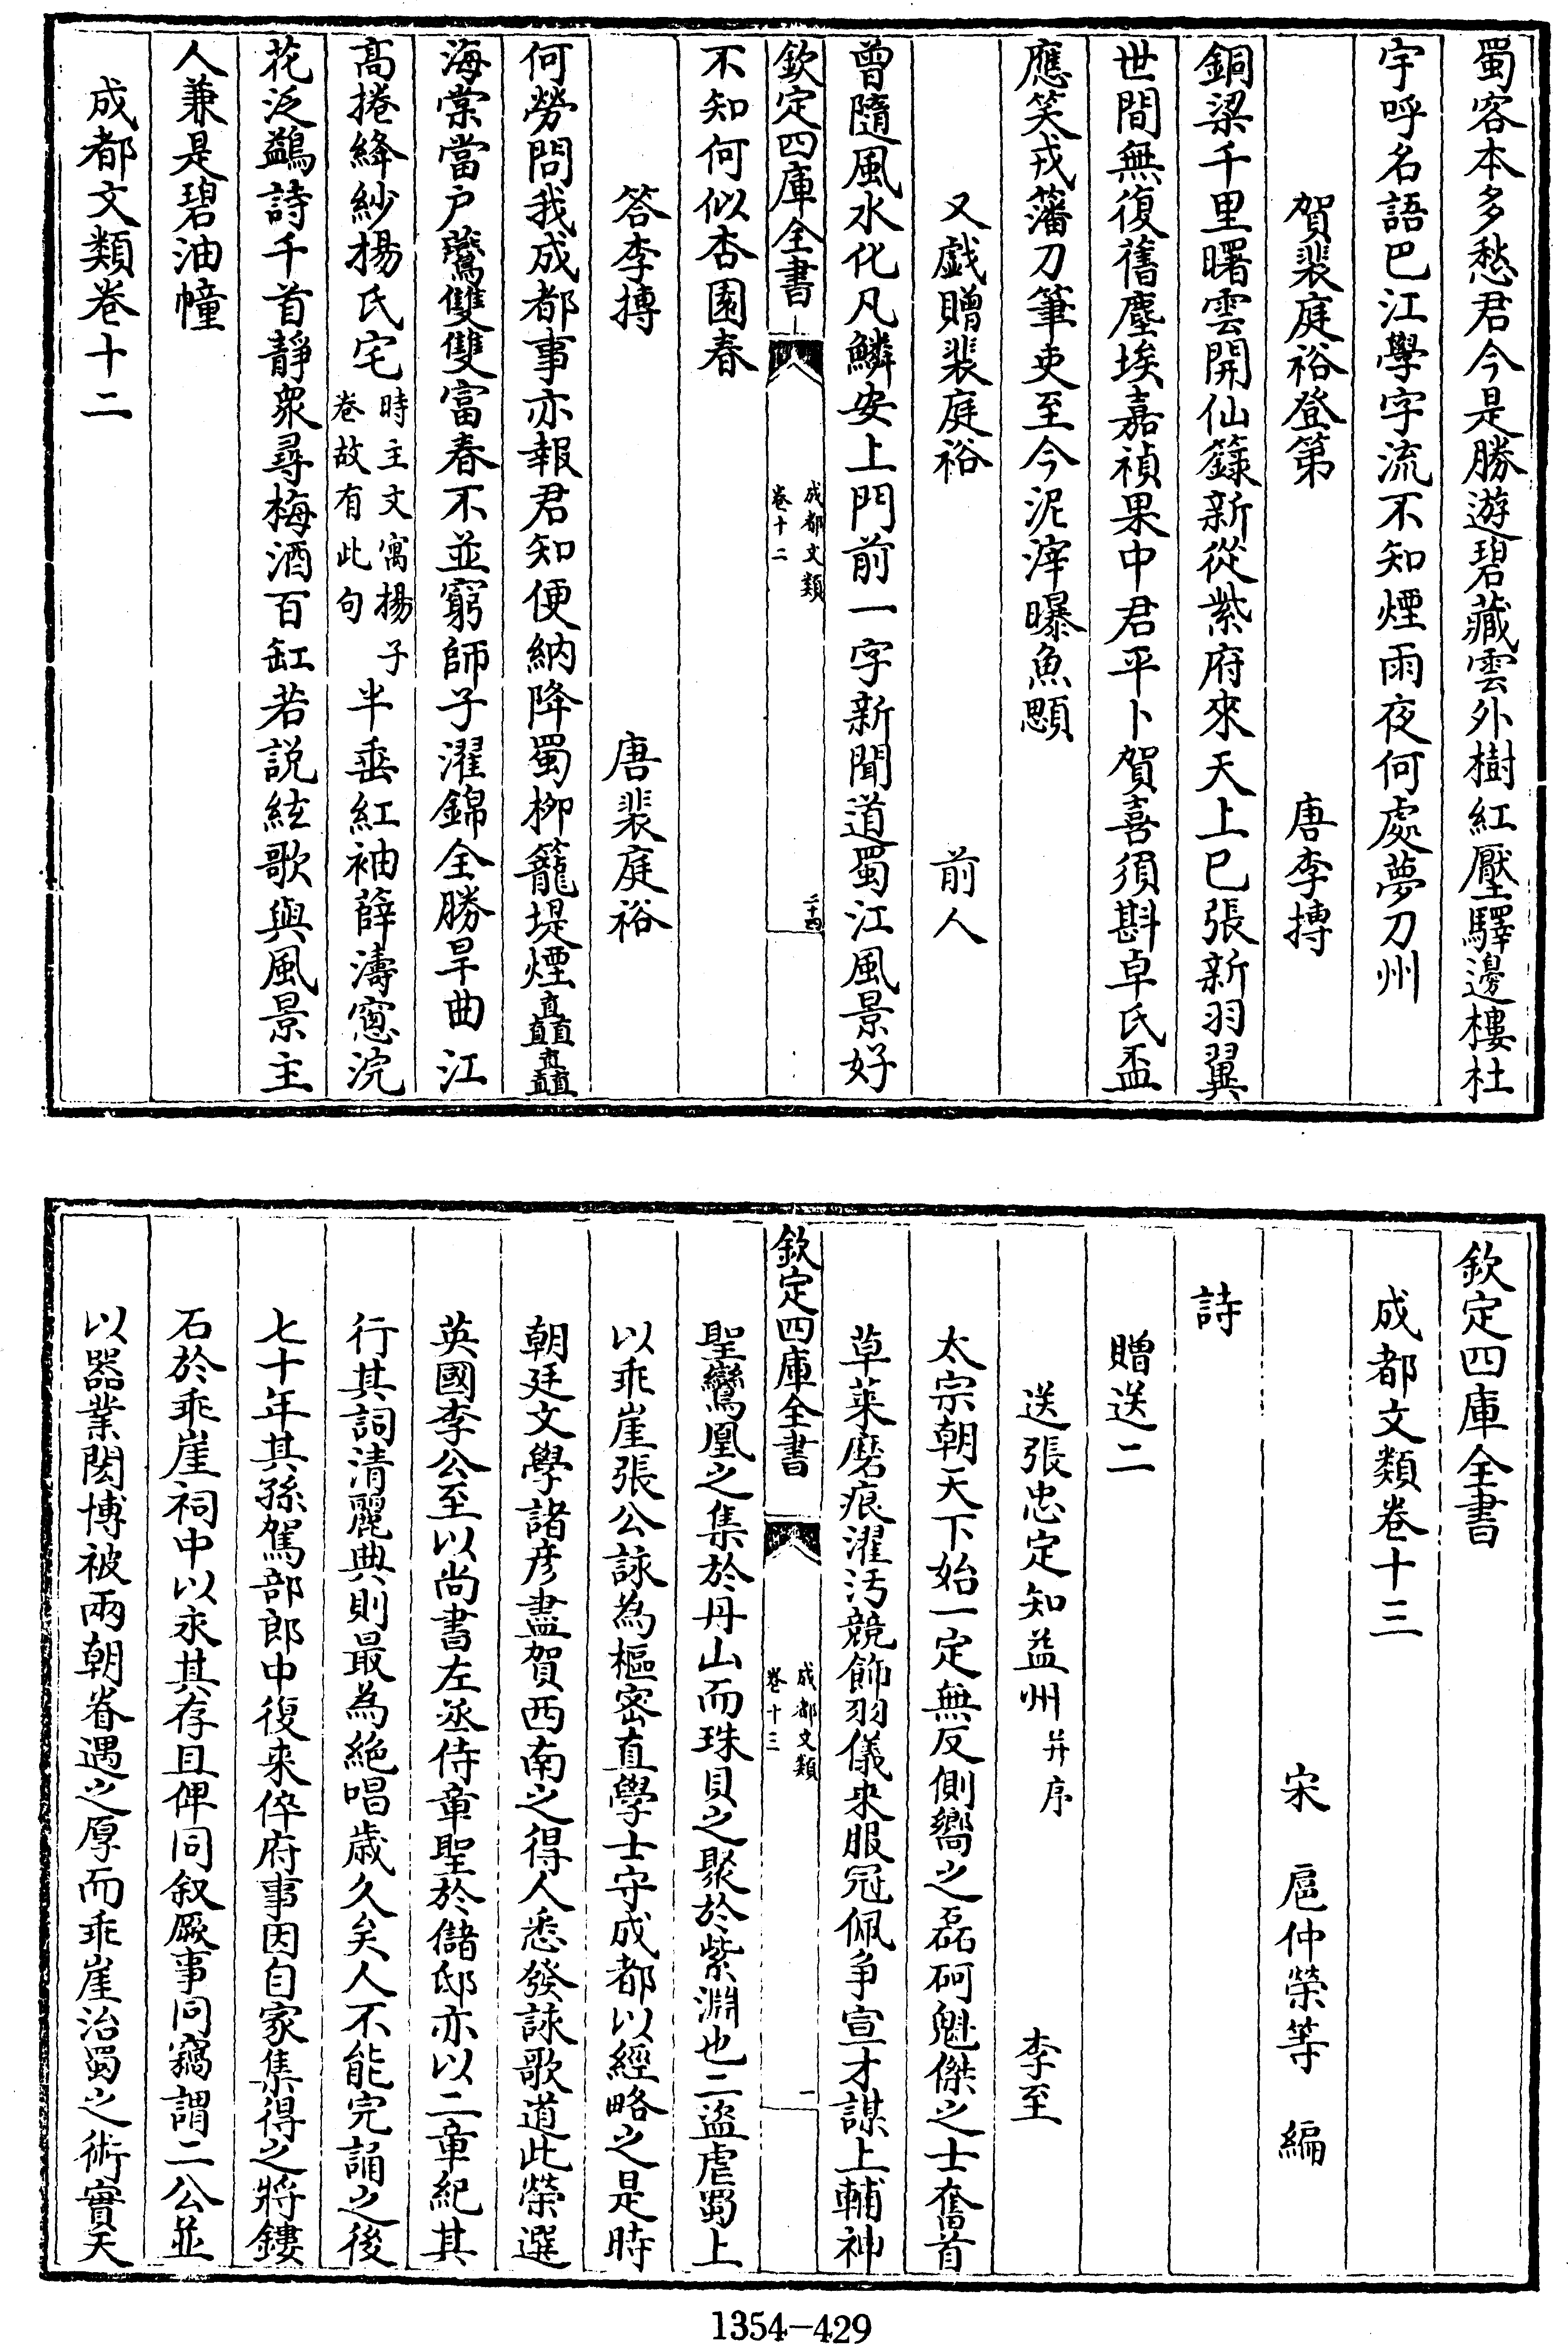 蜀客本多愁君今是勝遊碧藏雲外樹紅壓驛邊樓杜
宇呼名語巴江學字流不知煙雨夜何處夢刀州
賀裴庭裕登第　唐李摶
銅梁千里曙雲開仙籙新從紫府來天上已張新羽翼
世間無復舊塵埃嘉禎果中君平卜賀喜須斟卓氏盃
應笑戎籓刀筆吏至今泥滓曝魚顋
又戯贈裴庭裕　前人
曾隨風水化凡鱗安上門前一字新聞道蜀江風景好
欽定四庫全書　成都文類卷十二　二十四
不知何似杏園春
答李摶　唐裴庭裕
何勞問我成都事亦報君知便納降蜀栁籠堤煙矗矗
海棠當户鷰雙雙富春不並窮師子濯錦全勝旱曲江
高捲絳紗揚氏宅時主文寓揚子巷故有此句半垂紅袖薛濤窻浣
花泛鷁詩千首靜衆尋梅酒百缸若説絃歌與風景主
人兼是碧油幢
成都文類卷十二
欽定四庫全書
成都文類卷十三
宋　扈仲榮等　編
詩
贈送二
送張忠定知益州并序　李至
太宗朝天下始一定無反側嚮之磊砢魁傑之士奮首
草萊磨痕濯汚競飾羽儀來服冠佩争宣才謀上輔神
欽定四庫全書　成都文類卷十三　一
聖鸞凰之集於丹山而珠貝之聚於紫淵也二盜虐蜀上
以乖崖張公詠為樞密直學士守成都以經略之是時
朝廷文學諸彦盡賀西南之得人悉發詠歌道此榮選
英國李公至以尚書左丞侍章聖於儲邸亦以二章紀其
行其詞清麗典則最為絶唱歳久矣人不能完誦之後
七十年其孫駕部郎中復来倅府事因自家集得之將鏤
石於乖崖祠中以永其存且俾同叙厥事同竊謂二公並
以器業閎博被兩朝眷遇之厚而乖崖治蜀之術實天
1354-429